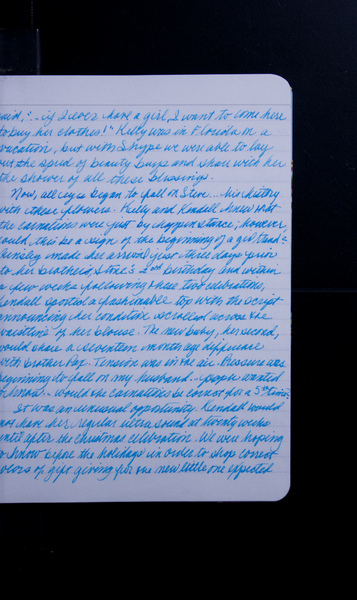 said, "...if I ever have a girl, I want to come here
to buy her clothes!" Kelly was in Florida on a
vacation, but with Skype we were able to lay
out the spread of beauty buys and share with her
the shower of all these blessings.
Now, all eyes began to fall on Steve... his history
with these flowers. Kelly and Kendall knew that
the carnations were just by happenstance; however,
could this be a sign of the beginning of a girl
made her arrival just three days prior
to her brother, 2nd birthday and within
a few weeks following these two celebrations,
Kendall sported a fashionable top with the script
announcing her condition scrolled across the
waistline of her blouse. The new baby, her second,
would share a seventeen month age difference
with brother Pax. Tension was in the air. Pressure was
beginning to fall on my husband... people wanted
to know... would the carnations be correct for a 5th time?
It was an unusual opportunity. Kendall would
not have her regular ultra sound at twenty weeks
until after the Christmas celebration. We were hoping
to know before the holidays in order to shop correct
colors of gift giving for the new little one expected